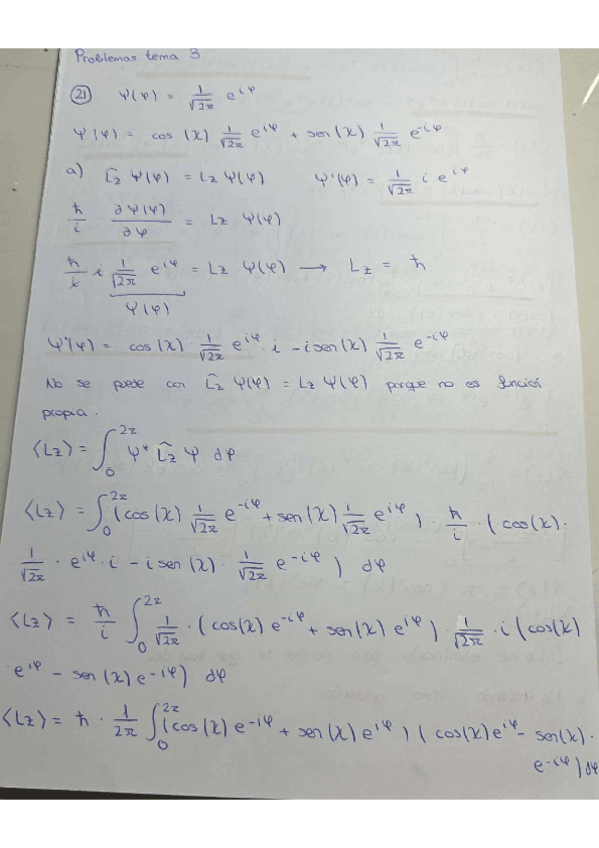 Problemas tema 3
(21) Ψ(φ) = 1/√2π e^iφ
Ψ(φ) = cos (χ) 1/√2π e^iφ + sen(χ) 1/√2π e^-iφ
a) L̂z Ψ(φ) = Lz Ψ(φ) Ψ'(φ) = 1/√2π i e^iφ
ħ/i ∂Ψ(φ)/∂φ = Lz Ψ(φ)
ħ/i i 1/√2π e^iφ = Lz Ψ(φ) → Lz = ħ
Ψ(φ)
Ψ'(φ) = cos(χ) · 1/√2π e^iφ · i - i sen(χ) 1/√2π e^-iφ
No se puede con L̂z Ψ(φ) = Lz Ψ(φ) porque no es función
propia.
⟨Lz⟩ = ∫₀^2π Ψ* L̂z Ψ dφ
⟨Lz⟩ = ∫₀^2π (cos(χ) 1/√2π e^-iφ + sen(χ) 1/√2π e^iφ) · ħ/i · (cos(χ) ·
1/√2π · e^iφ · i - i sen(χ) · 1/√2π e^-iφ) dφ
⟨Lz⟩ = ħ/i ∫₀^2π 1/√2π · (cos(χ) e^-iφ + sen(χ) e^iφ) · 1/√2π · i (cos(χ)
e^iφ - sen(χ) e^-iφ) dφ
⟨Lz⟩ = ħ · 1/2π ∫₀^2π (cos(χ) e^-iφ + sen(χ) e^iφ) (cos(χ) e^iφ - sen(χ) ·
e^-iφ) dφ